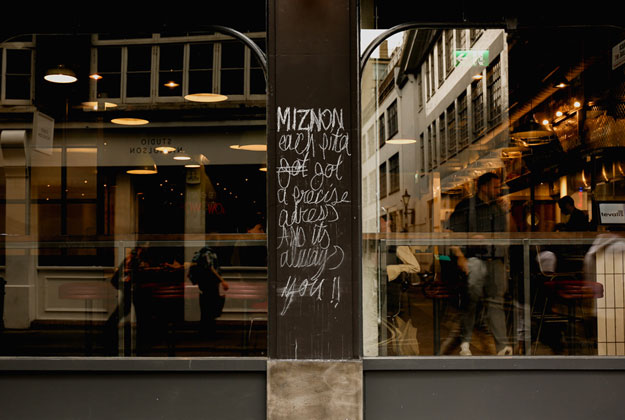 MIZNON
each pita
got got
a precise
adress
And its
always
you!!
STUDIO
NICHOLSON
tevalis